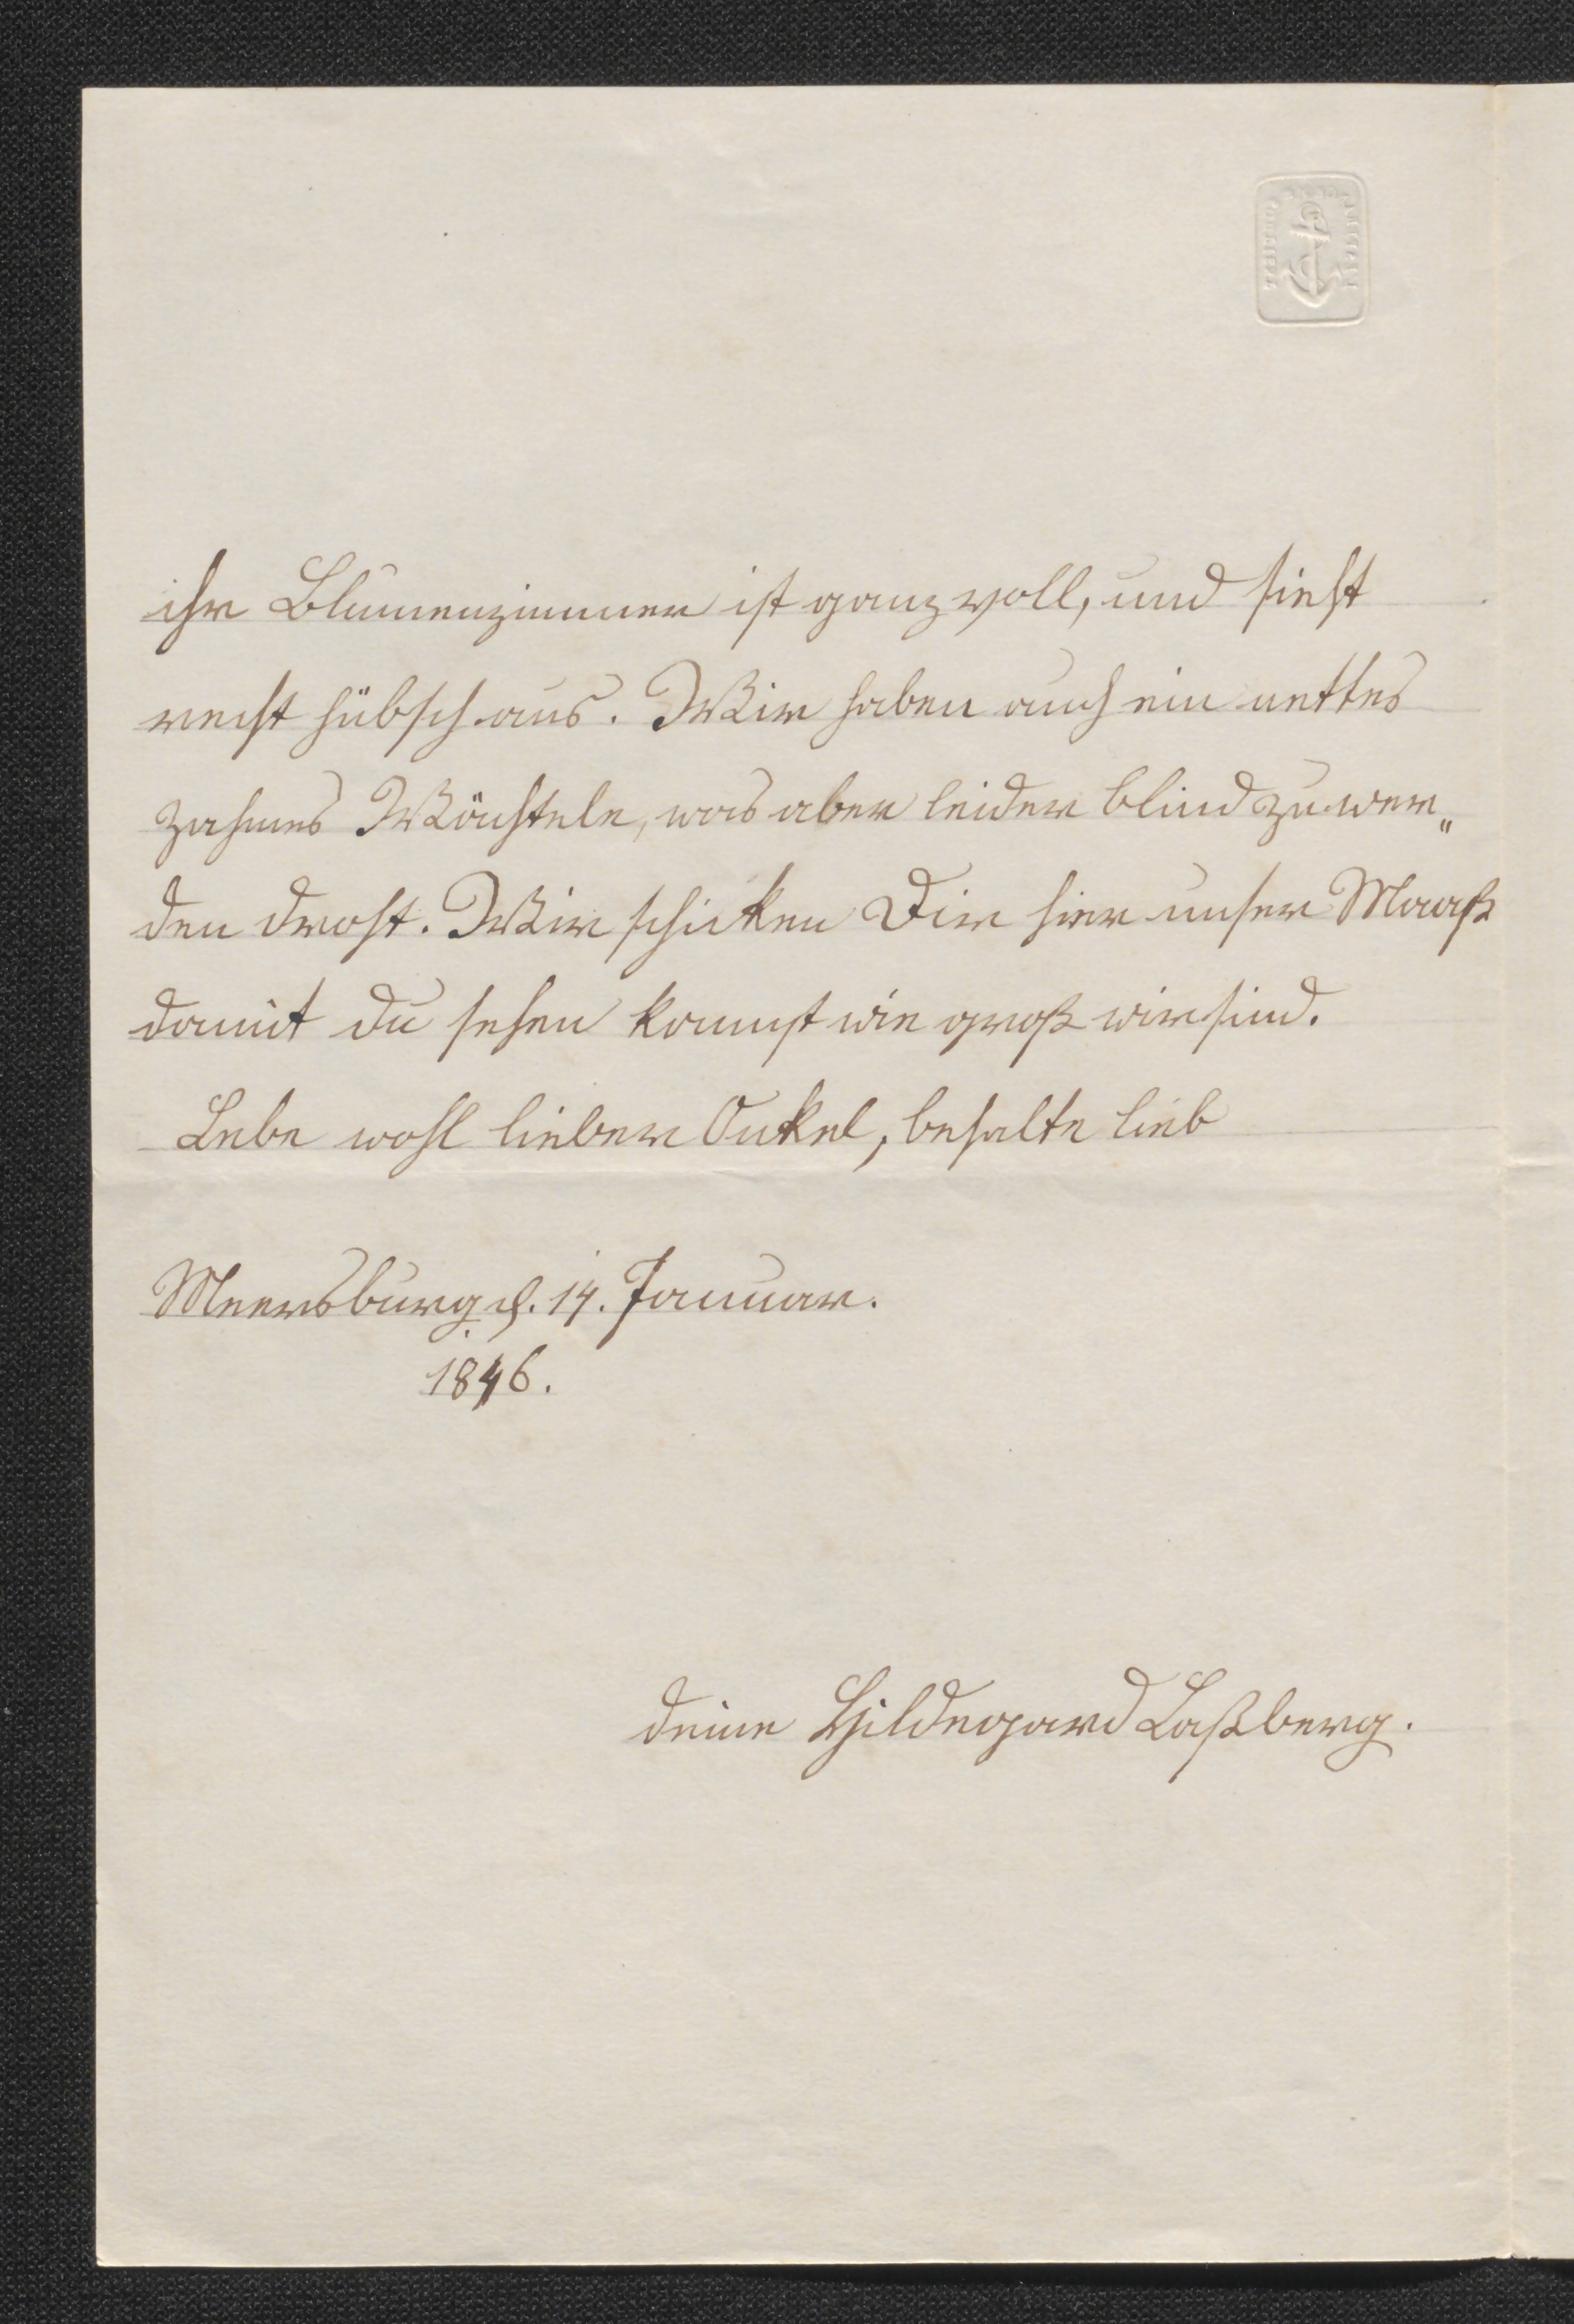 ihr Blumenzimmer ist ganz voll, und sieht
recht hübsch aus. Wir haben auch ein nettes
zahmes Wächtele, was aber leider blind zu wer„
den droht. Wir schicken Dir hier unser Maaß
damit du sehen kannst wie groß wir sind.
Lebe wohl lieber Onkel, behalte lieb
Meersburg d. 14. Januar.
1846.
deine Hildegard Laßberg.